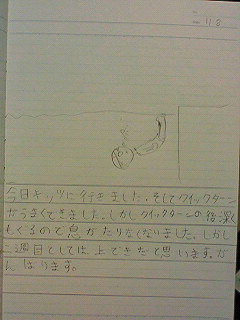 今日キッツに行きました。そしてクイックターン
がうまくできました。しかしクイックターンの後深く
もぐるので息がたりなくなりました。しかし
二週目としては、上できだと思います。が
んばります。